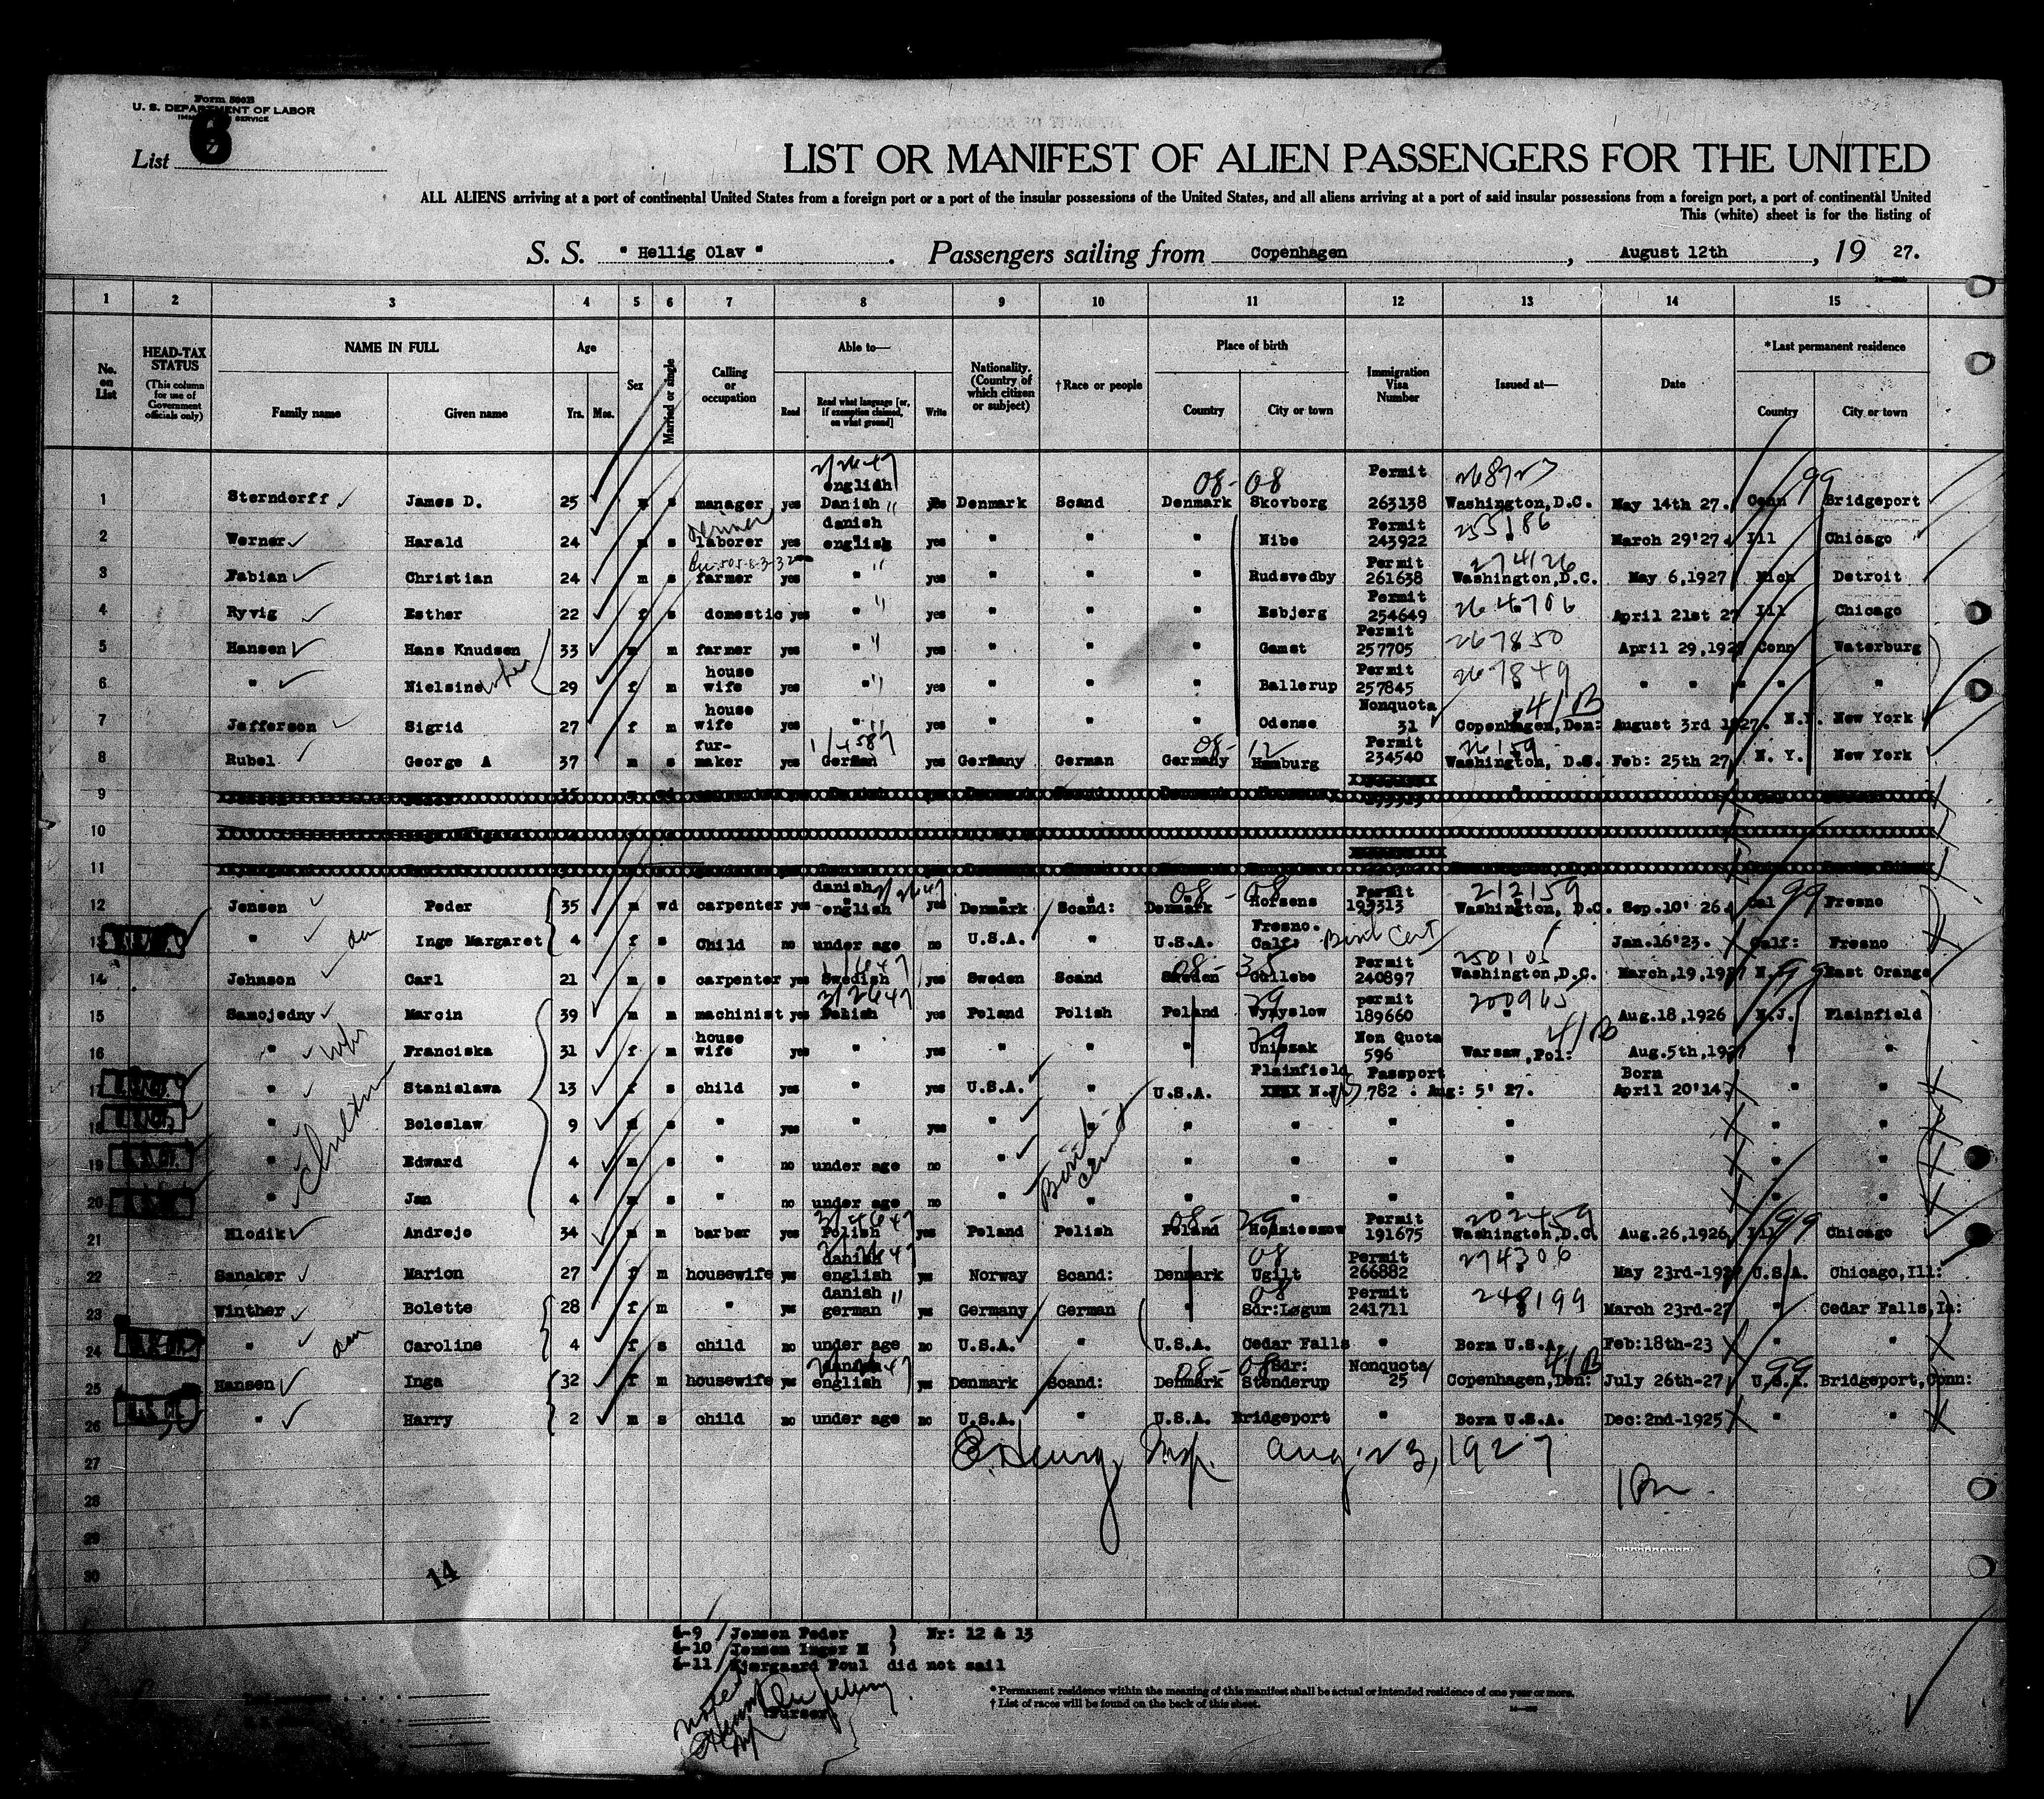 Form 500B
U. S. DEPARTMENT OF LABOR
IMMIGRATION SERVICE
List 6
LIST OR MANIFEST OF ALIEN PASSENGERS FOR THE UNITED
ALL ALIENS arriving at a port of continental United States from a foreign port or a port of the insular possessions of the United States, and all aliens arriving at a port of said insular possessions from a foreign port, a port of continental United
This (white) sheet is for the listing of
S. S. " Hellig Olav " . Passengers sailing from Copenhagen , August 12th , 19 27.
1 2 3 4 5 6 7 8 9 10 11 12 13 14 15
No. on List
HEAD-TAX STATUS (This column for use of Government officials only)
NAME IN FULL Family name Given name
Age Yrs. Mos.
Sex
Married or single
Calling or occupation
Able to— Read Read what language [or, if exemption claimed, on what ground] Write
Nationality. (Country of which citizen or subject)
† Race or people
Place of birth Country City or town
Immigration Visa Number
Issued at—
Date
* Last permanent residence Country City or town
2/2647 08-08 Permit 268727 99
1 Sterndorff James D. 25 m s manager yes english Danish " yes Denmark Scand Denmark Skovborg 263138 Washington, D.C. May 14th 27. Conn Bridgeport
2 Werner Harald 24 m s laborer yes danish english yes " " " Nibe Permit 243922 255186 " March 29'27. Ill Chicago
3 Fabian Christian 24 m s farmer yes " " yes " " " Rudsvedby Permit 261638 274126 Washington, D.C. May 6, 1927 Mich Detroit
4 Ryvig Esther 22 f s domestic yes " " yes " " " Esbjerg Permit 254649 264706 " April 21st 27 Ill Chicago
5 Hansen Hans Knudsen 33 m m farmer yes " " yes " " " Gamst Permit 257705 267850 " April 29, 1927 Conn Waterburg
6 " Nielsine wife 29 f m house wife yes " " yes " " " Ballerup Permit 257845 267849 " " " " "
7 Jefferson Sigrid 27 f m house wife yes " " yes " " " Odense Nonquota 31 41B Copenhagen, Den: August 3rd 1927. N.Y. New York
8 Rubel George A 37 m s fur- maker yes 1/4587 German yes Germany German Germany 08-12 Hamburg Permit 234540 26159 Washington, D.C. Feb: 25th 27 N. Y. New York
9
10
11
12 Jensen Peder 35 m wd carpenter yes danish english 2/2647 yes Denmark Scand: Denmark 08-08 Horsens Permit 195313 212159 Washington, D.C. Sep. 10' 26. Cal 99 Fresno
13 " Inge Margaret 4 f s Child no under age no U.S.A. " U.S.A. Fresno. Calf: Birth Cert Jan. 16'23. Calf: Fresno
14 Johnson Carl 21 m s carpenter yes Swedish yes Sweden Scand Sweden 08-35 Gullebo Permit 240897 250105 Washington, D.C. March, 19, 1927 N.J. 99 East Orange
15 Samojedny Marcin 39 m m machinist yes 2/2647 Polish yes Poland Polish Poland 29 permit 189660 200965 " Aug. 18, 1926 N.J. Plainfield
16 " wife Franciska 31 f m house wife yes " yes " " " 29 Uniszak Non Quota 596 41B Warsaw, Pol: Aug. 5th, 1927 " "
17 " Stanislawa 13 f s child yes " yes U.S.A. " U.S.A. Plainfield N.J. Passport 782 : Aug: 5' 27. Born April 20'14. " "
18 " children Boleslaw 9 m s " yes " yes " " " " " " " " "
19 " Edward 4 m s " no under age no " Birth Cert " " " " " " "
20 " Jan 4 m s " no under age no " " " " " " " " "
21 Hlodik Andrejo 34 m m barber yes Polish yes Poland Polish Poland 08-29 Permit 191675 202459 Washington, D.C. Aug. 26, 1926 Ill 99 Chicago
22 Sanaker Marion 27 f m housewife yes danish english yes Norway Scand: Denmark 08 Ugilt Permit 266882 274306 " May 23rd-1927 U.S.A. Chicago, Ill:
23 Winther Bolette 28 f m " yes danish german " yes Germany German " 08 Sdr: Løgum Permit 241711 248199 March 23rd-27 " Cedar Falls, Ia:
24 " Caroline 4 f s child no under age no U.S.A. " U.S.A. Cedar Falls " Born U.S.A. Feb: 18th-23 " "
25 Hansen Inga 32 f m housewife yes danish english yes Denmark Scand: Denmark 08-08 Sdr: Stenderup Nonquota 25 41B Copenhagen, Den: July 26th-27 U.S.A. 99 Bridgeport, Conn:
26 " Harry 2 m s child no under age no U.S.A. " U.S.A. Bridgeport " Born U.S.A. Dec: 2nd-1925 " "
27 Insp. Aug. 23, 1927
28
29
30
14
6-9 Jensen Peder ) Nr: 12 & 13
6-10 Jensen Inger M )
6-11 Kjærgaard Poul did not sail
noted
Purser
* Permanent residence within the meaning of this manifest shall be actual or intended residence of one year or more.
† List of races will be found on the back of this sheet.